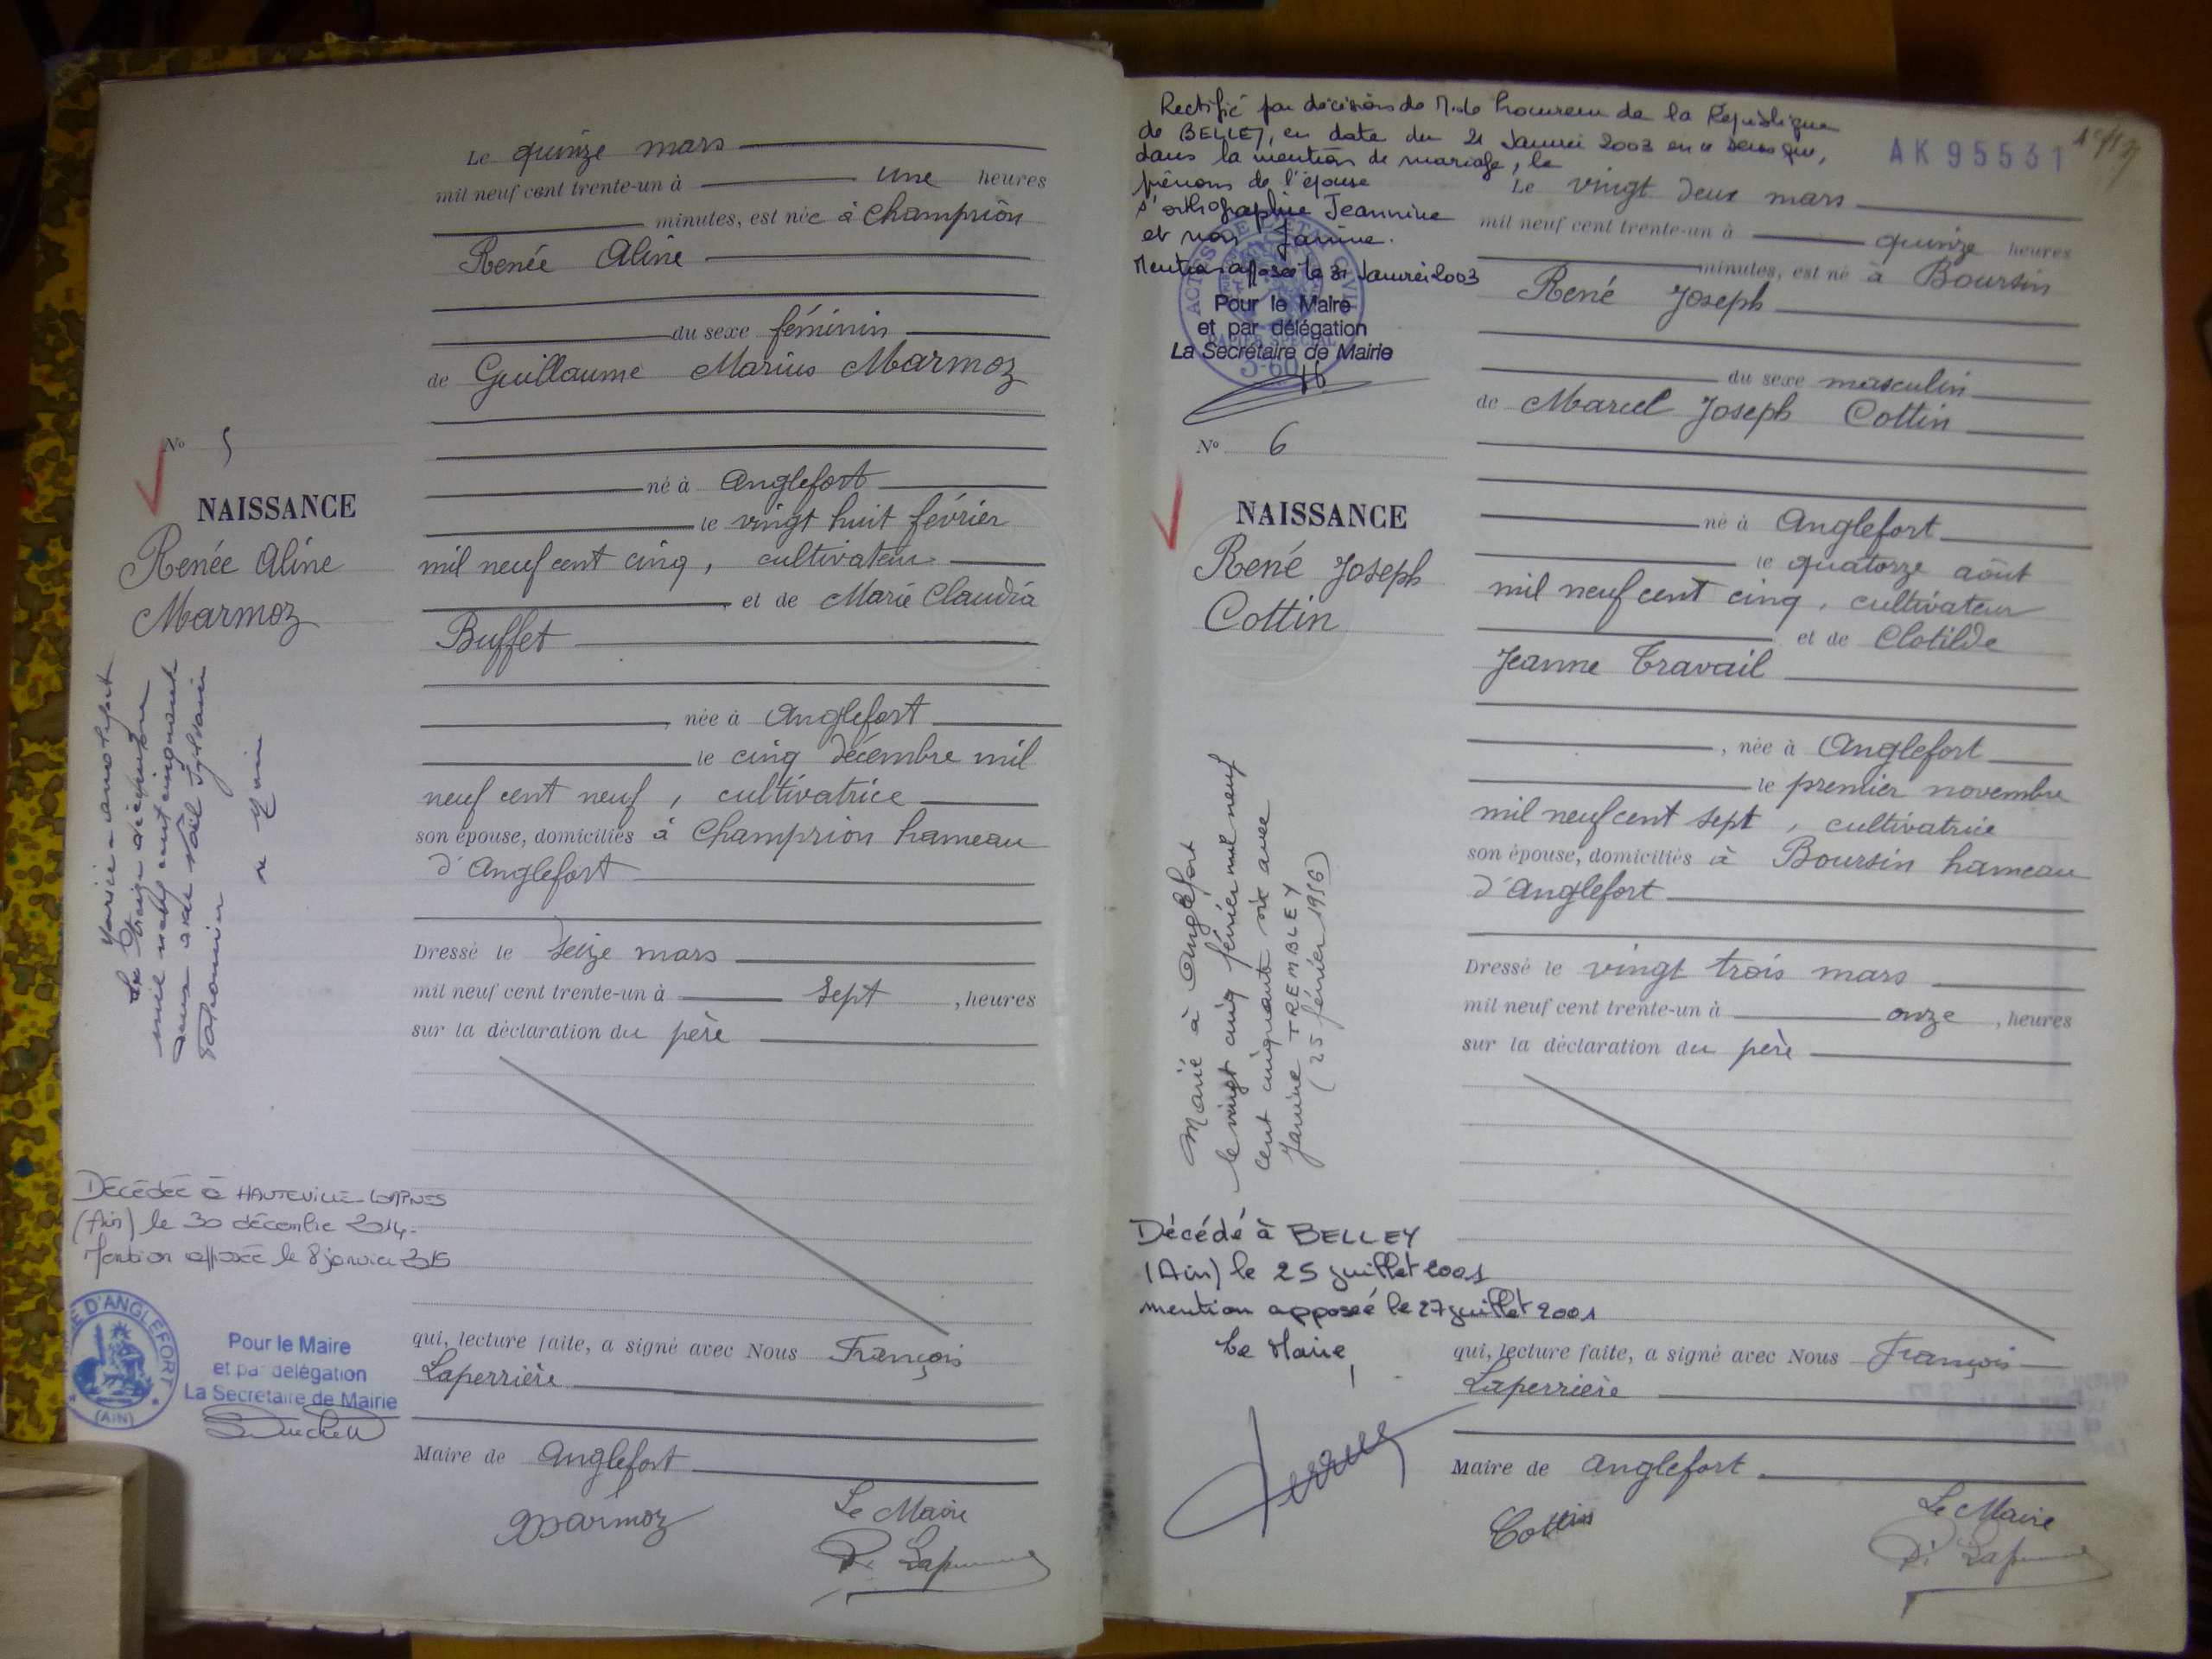 Le quinze mars
mil neuf cent trente-un à une heures
minutes, est née à Champrion
Renée Aline
du sexe féminin
de Guillaume Marius Marmoz
né à Anglefort
le vingt huit février
mil neuf cent cinq, cultivateur
et de Marie Claudia
Buffet
, née à Anglefort
le cinq décembre mil
neuf cent neuf, cultivatrice
son épouse, domiciliés à Champrion hameau
d'Anglefort
Dressé le seize mars
mil neuf cent trente-un à sept, heures
sur la déclaration du père
qui, lecture faite, a signé avec Nous François
Laperrière
Maire de Anglefort
Marmoz
Le Maire
Laperrière
No 5
NAISSANCE
Renée Aline
Marmoz
mil neuf cent cinquante
Décédée à HAUTEVILLE-LOMPNES
(Ain) le 30 décembre 2014.
Mention apposée le 8 janvier 2015
MAIRIE D'ANGLEFORT
(AIN)
Pour le Maire
et par délégation
La Secrétaire de Mairie
Rectifié par décision de M. le Procureur de la République
de BELLEY, en date du 21 Janvier 2003 en ce sens que,
dans la mention de mariage, le
prénom de l'épouse
s'orthographie Jeannine
et non Janine.
Mention apposée le 31 Janvier 2003
Pour le Maire
et par délégation
La Secrétaire de Mairie
AK 95531
No 6
NAISSANCE
René Joseph
Cottin
Marié à Anglefort
le vingt cinq février mil neuf
cent cinquante six avec
Janine TREMBLEY
(25 février 1956)
Décédé à BELLEY
(Ain) le 25 juillet 2001
mention apposée le 27 juillet 2001
Le Maire,
Le vingt deux mars
mil neuf cent trente-un à quinze heures
minutes, est né à Boursin
René Joseph
du sexe masculin
de Marcel Joseph Cottin
né à Anglefort
le quatorze août
mil neuf cent cinq, cultivateur
et de Clotilde
Jeanne Travail
, née à Anglefort
le premier novembre
mil neuf cent sept, cultivatrice
son épouse, domiciliés à Boursin hameau
d'Anglefort
Dressé le vingt trois mars
mil neuf cent trente-un à onze, heures
sur la déclaration du père
qui, lecture faite, a signé avec Nous François
Laperrière
Maire de Anglefort
Cottin
Le Maire
Laperrière